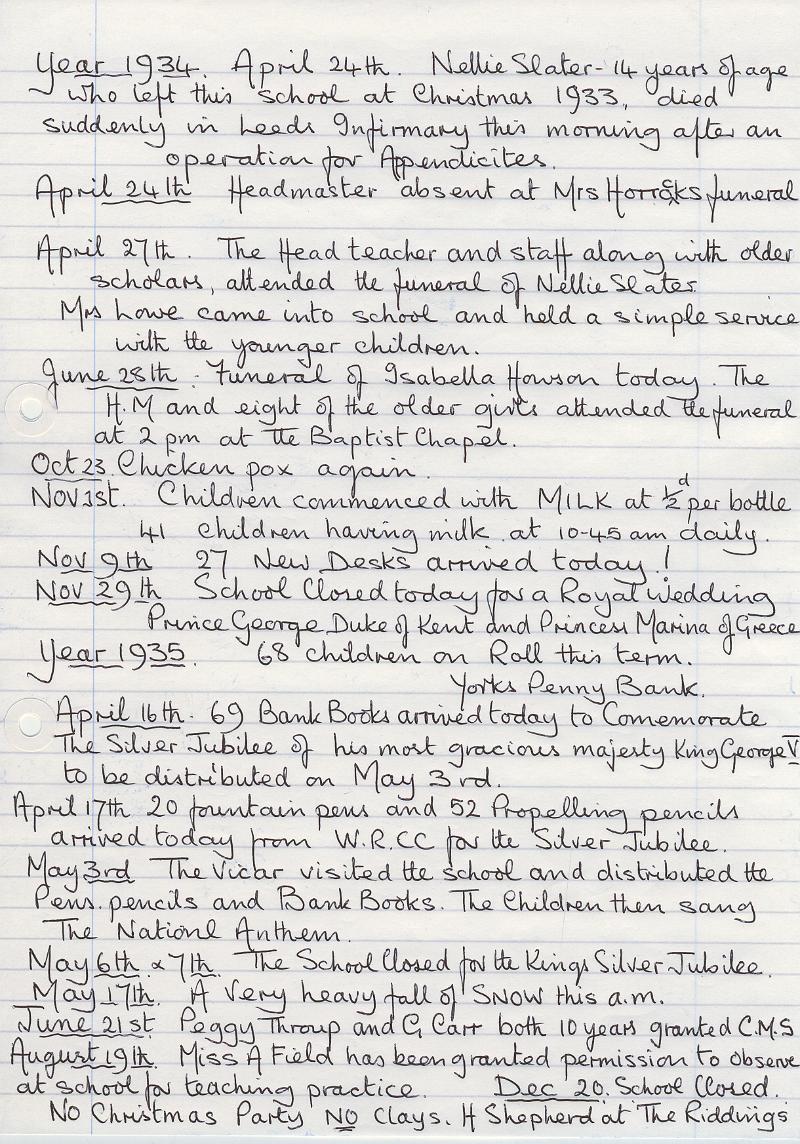 Year 1934. April 24th. Nellie Slater - 14 years of age
who left this school at Christmas 1933, died
suddenly in Leeds Infirmary this morning after an
operation for Appendicites.
April 24th Headmaster absent at Mrs Horrocks funeral
April 27th. The Head teacher and staff along with older
scholars, attended the funeral of Nellie Slater
Mrs Lowe came into school and held a simple service
with the younger children.
June 28th. Funeral of Isabella Howson today. The
H.M and eight of the older girls attended the funeral
at 2 pm at the Baptist Chapel.
Oct 23. Chicken pox again.
Nov 1st. Children commenced with MILK at ½d per bottle
41 children having milk at 10-45 am daily.
Nov 9th 27 New Desks arrived today!
Nov 29th School Closed today for a Royal Wedding
Prince George Duke of Kent and Princess Marina of Greece
Year 1935. 68 children on Roll this term.
Yorks Penny Bank.
April 16th. 69 Bank Books arrived today to Comemorate
The Silver Jubilee of his most gracious majesty King George V
to be distributed on May 3rd.
April 17th 20 fountain pens and 52 Propelling pencils
arrived today from W.R.CC for the Silver Jubilee.
May 3rd The Vicar visited the school and distributed the
Pens. pencils and Bank Books. The Children then sang
The Nationl Anthem.
May 6th & 7th. The School Closed for the Kings Silver Jubilee.
May 17th. A Very heavy fall of SNOW this a.m.
June 21st. Peggy Throup and G Carr both 10 years granted C.M.S
August 19th. Miss A Field has been granted permission to observe
at school for teaching practice. Dec 20. School Closed.
No Christmas Party NO Clays. H Shepherd at The Riddings